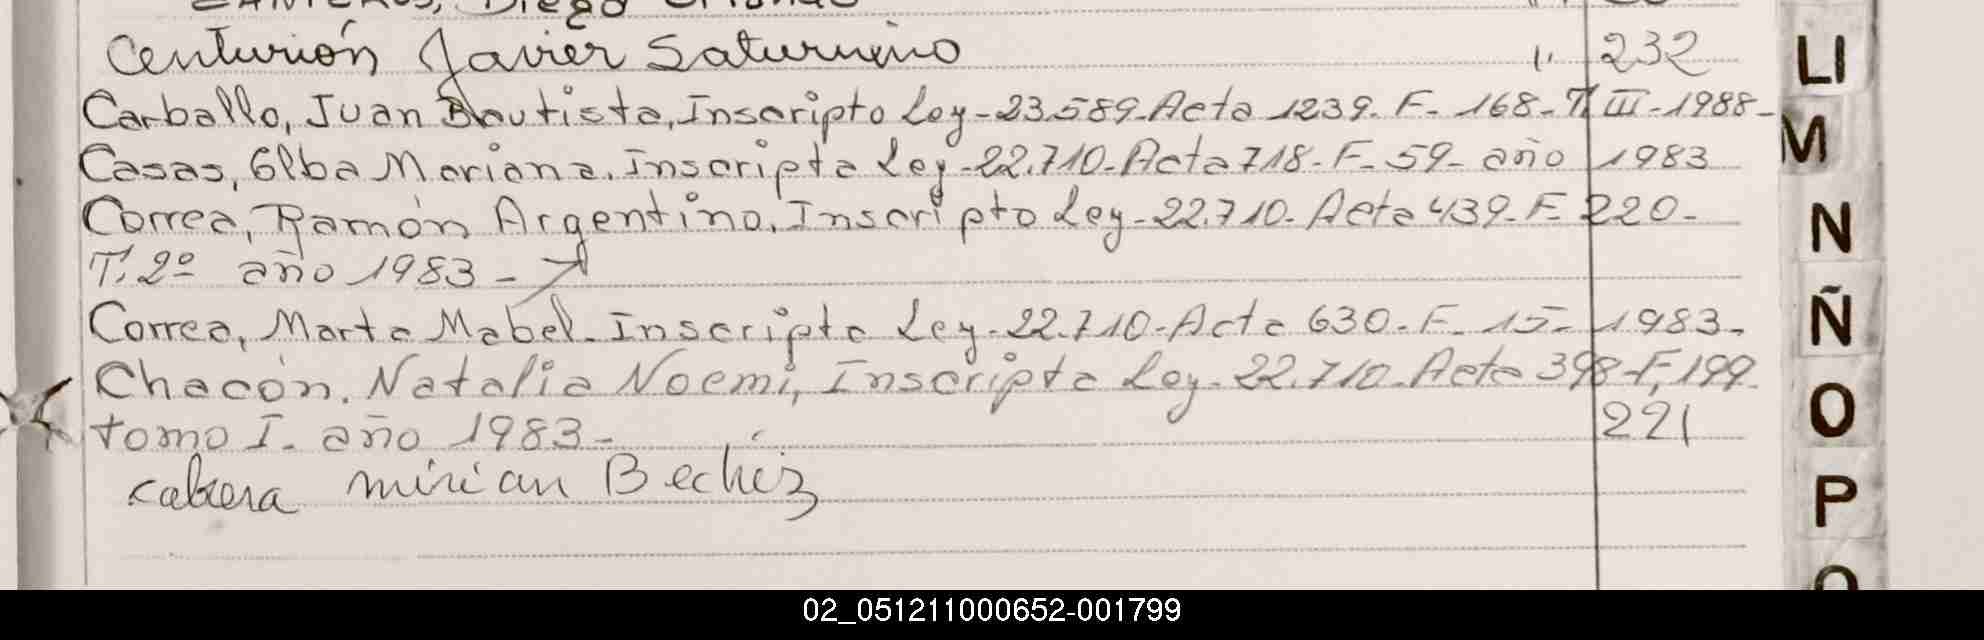 CANTEROS, Diego Orlando
Centurión Javier Saturnino " 232
Carballo, Juan Bautista, Inscripto Ley-23.589-Acta 1239. F. 168-T. III-1988-
Casas, Elba Mariana. Inscripta Ley-22.710-Acta 718-F. 59- año 1983
Correa, Ramón Argentino. Inscripto Ley-22.710- Acta 439-F. 220-
T. 2º año 1983 -
Correa, Marta Mabel. Inscripta Ley-22.710-Acta 630-F. 15- 1983-
Chacón, Natalia Noemí, Inscripta Ley-22.710-Acta 398-F. 199
tomo I. año 1983- 221
cabrera mirian Bechiz
LI
M
N
Ñ
O
P
02_051211000652-001799